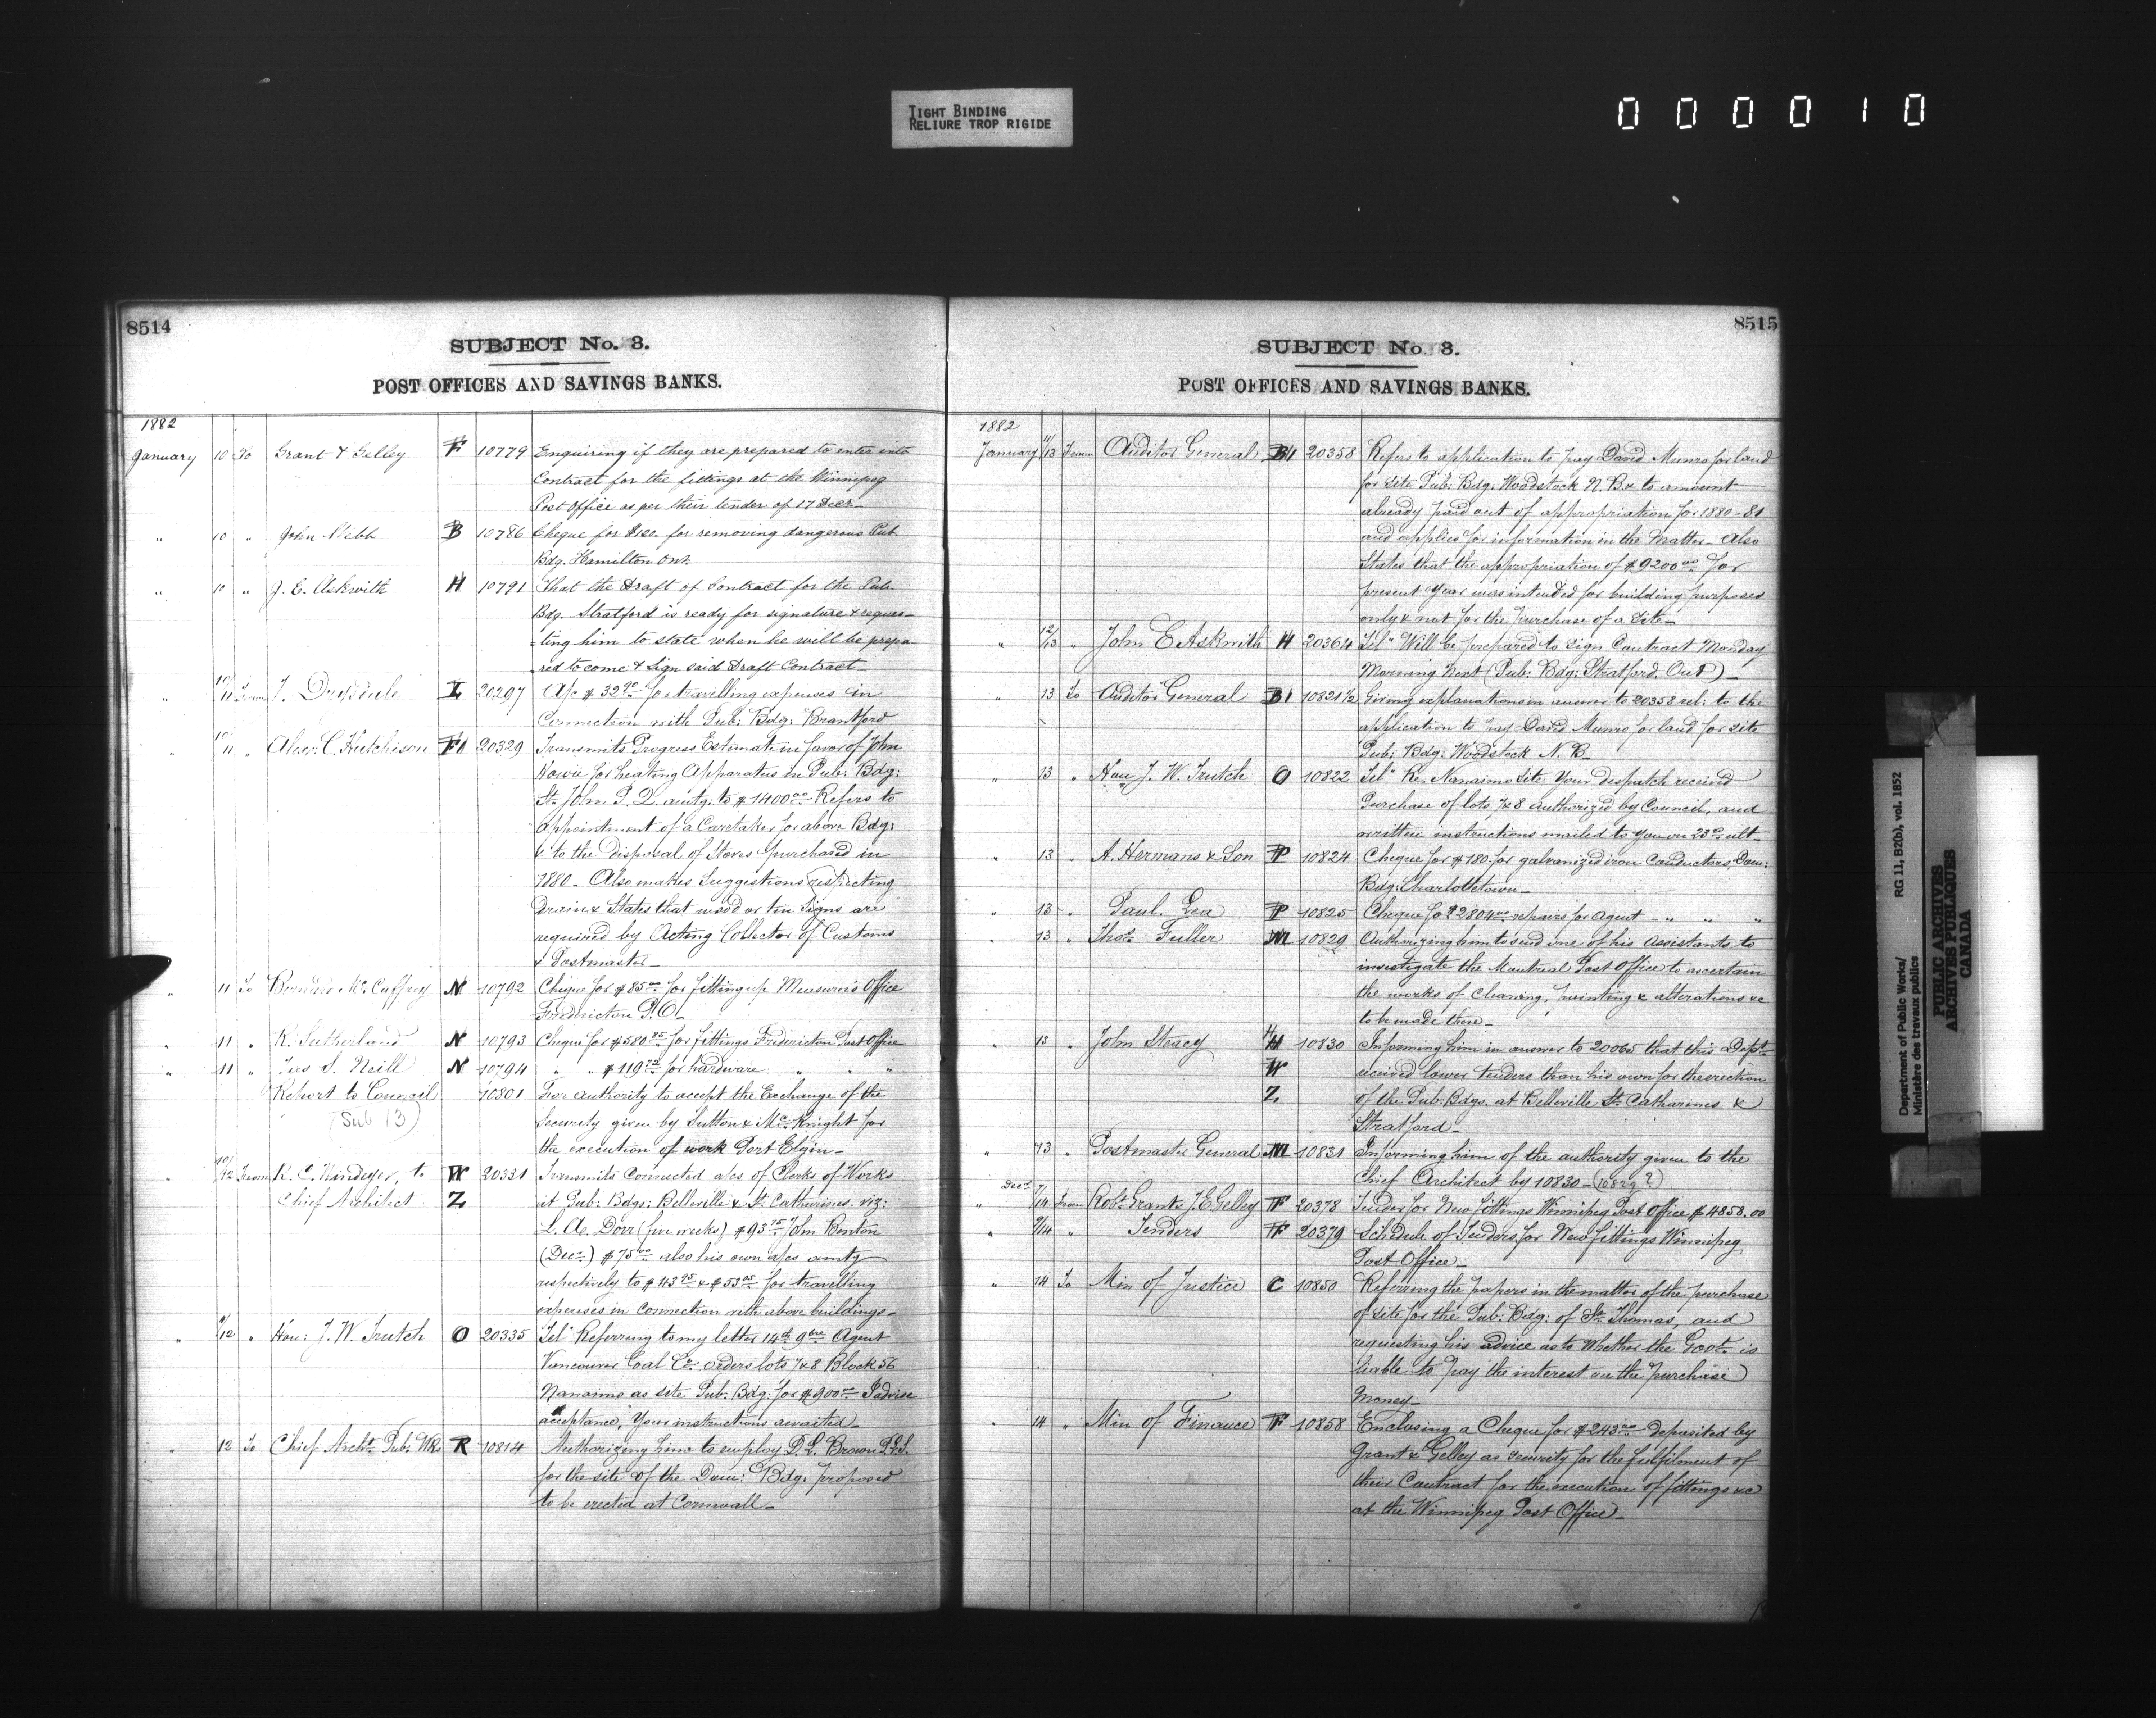 TIGHT BINDING
RELIURE TROP RIGIDE
000010
8514
SUBJECT No. 3.
POST OFFICES AND SAVINGS BANKS.
1882
January 10 To Grant & Gelley F 10779 Enquiring if they are prepared to enter into
Contract for the fittings at the Winnipeg
Post Office as per their tender of 17 Decr
" 10 " John Webb B 10786 Cheque for $120. for removing dangerous Pub
Bdg. Hamilton Ont.
" 10 " J. E. Askwith H 10791 That the Draft of Contract for the Pub.
Bdg. Stratford is ready for signature & reques-
-ting him to state when he will be prepa-
red to come & sign said Draft Contract
" 10/11 From J. Drysdale I 20297 A/c $32.90 for travelling expenses in
Connection with Pub: Bdg: Brantford
" 10/11 " Alexr. C. Hutchison F1 20329 Transmits Progress Estimate in favor of John
Howie for heating Apparatus in Pub: Bdg:
St. John P. Q. amtg. to $1400.00 Refers to
appointment of a Caretaker for above Bdg:
& to the disposal of Stoves purchased in
1880 - Also makes Suggestions respecting
Drain & States that wood or tin Signs are
required by Acting Collector of Customs
& Postmaster -
" 11 To McCaffrey N 10792 Cheque for $85.00 for fitting up Measurer's Office
Fredricton P.O.
" 11 " K. Sutherland N 10793 Cheque for $580.25 for fittings Fredericton Post Office
" 11 " Jas S. Neill N 10794 " " $119.72 for hardware " " "
Report to Council 10801 For authority to accept the Exchange of the
(Sub 13) Security given by Sutton & McKnight for
the execution of work Port Elgin -
" 10/12 From R. C. Windeyer, to W 20331 Transmits Connected a/cs of Clerks of Works
Chief Architect Z at Pub: Bdgs: Belleville & St. Catharines. viz:
L. A. Dorr (five weeks) $93.75 John Benton
(Decr.) $75.00 also his own a/cs amtg
respectively to $43.95 & $53.05 for travelling
expenses in Connection with above buildings -
" 9/12 " Hon: J. W. Trutch O 20335 Tel" Referring to my letter 14th 9bre Agent
Vancouver Coal Co. orders lots 7 & 8 Block 56
Nanaimo as site Pub. Bdg: for $900.00 I advise
acceptance, Your instructions awaited -
" 12 To Chief Archt. Pub: Wks R 10814 Authorizing him to employ P. L. Brown P.L.S.
for the site of the Dom: Bdg. proposed
to be erected at Cornwall -
8515
SUBJECT No. 3.
POST OFFICES AND SAVINGS BANKS.
1882
January 11/13 From Auditor General B1 20358 Refers to application to pay David Munro for land
for site Pub: Bdg: Woodstock N. B. & to amount
already paid out of appropriation for 1880-81
and applies for information in the Matter - Also
States that the appropriation of $9200.00 for
present Year was intended for building purposes
only & not for the purchase of a site -
" 12/13 " John E Askwith H 20364 Tel" Will be prepared to sign Contract Monday
Morning next (Pub: Bdg: Stratford. Ont) -
" 13 To Auditor General B1 10821½ Giving explanations in answer to 20358 rel: to the
application to pay David Munro for land for site
Pub: Bdg: Woodstock N. B.
" 13 " Hon J. W. Trutch O 10822 Tel" Re. Nanaimo Site Your despatch received
Purchase of lots 7 & 8 authorized by Council, and
written instructions mailed to you on 23rd ult -
" 13 " A. Hermans & Son P 10824 Cheque for $180. for galvanized iron Conductors, Dom:
Bdg: Charlottetown -
" 13 " Paul. Lea P 10825 Cheque for $2804.00 repairs for Agent - " " "
" 13 " Thos. Fuller M 10829 Authorizing him to send one of his Assistants to
investigate the Montreal Post Office to ascertain
the works of Cleaning, painting & alterations &c
to be made there -
" 13 " John Stacy H 10830 Informing him in answer to 20065 that this Dept.
W received lower tenders than his own for the erection
Z. of the Pub: Bdgs. at Belleville St. Catharines &
Stratford -
" 13 " Postmaster General M 10831 Informing him of the authority given to the
Chief Architect by 10830 - (10829?)
" Decr. 7/14 From Robt. Grant & J. E. Gelley F 20378 Tender for New fittings Winnipeg Post Office $4858.00
" 9/14 " Tenders F 20379 Schedule of Tenders for New fittings Winnipeg
Post Office -
" 14 To Min of Justice C 10850 Referring the papers in the matter of the purchase
of site for the Pub: Bdg: of St. Thomas, and
requesting his advice as to Whether the Govt. is
liable to pay the interest on the purchase
Money -
" 14 " Min of Finance F 10858 Enclosing a Cheque for $243.00 deposited by
Grant & Gelley as security for the fulfilment of
their Contract for the execution of fittings &c
at the Winnipeg Post Office -
Department of Public Works/ RG 11, B2(b), vol. 1852
Ministère des travaux publics
PUBLIC ARCHIVES
ARCHIVES PUBLIQUES
CANADA